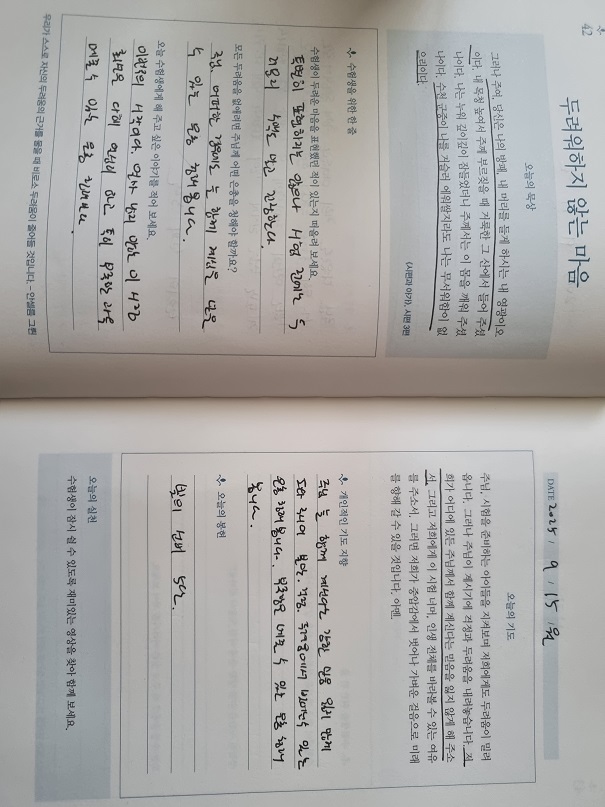 42
두려워하지 않는 마음
오늘의 묵상
그러나 주여, 당신은 나의 방패, 내 머리를 들게 하시는 내 영광이오
이다. 내 목청 높여서 주께 부르짖을 때 거룩한 그 산에서 들어 주셨
나이다. 나는 누워 깊이깊이 잠들었더니 주께서는 이 몸을 깨워 주셨
나이다. 수천 군중이 나를 거슬러 에워쌀지라도 나는 무서워함이 없
으리이다.
(시편과 아가), 시편 3편
수험생을 위한 한 줌
수험생이 두려운 마음을 표현했던 적이 있는지 떠올려 보세요.
특별히 표현하지는 않으나 시험 전에는 늑
모든 두려움을 없애려면 주님께 어떤 은총을 청해야 할까요?
주님, 어떠한 경우에도 늘 함께 계심을 믿을
수 있는 은총 청해 봅니다.
오늘 수험생에게 해 주고 싶은 이야기를 적어 보세요.
우리가 스스로 자신의 두려움의 근거를 물을 때 비로소 두려움이 줄어들 것입니다. - 안셀름 그륀
DATE 2025 / 9 / 15 / 월
오늘의 기도
주님, 시험을 준비하는 아이들을 지켜보며 저희에게도 두려움이 밀려
옵니다. 그러나 주님이 계시기에 걱정과 두려움을 내려놓습니다. 저
희가 어디에 있든 주님께서 함께 계신다는 믿음을 잃지 않게 해 주소
서. 그리고 저희에게 이 시험 너머, 인생 전체를 바라볼 수 있는 여유
를 주소서. 그러면 저희가 중압감에서 벗어나 가벼운 걸음으로 미래
를 향해 갈 수 있을 것입니다. 아멘.
개인적인 기도 지향
주님 늘 함께 계신다는 강한 믿음 잃지 않게
도와 주시어 불안, 걱정, 두려움에서 벗어날 수 있는
은총 청해 봅니다. 부족함은 채울 수 있는 은총 청해
봅니다.
오늘의 봉헌
오늘의 실천
수험생이 잠시 쉴 수 있도록 재미있는 영상을 찾아 함께 보세요.